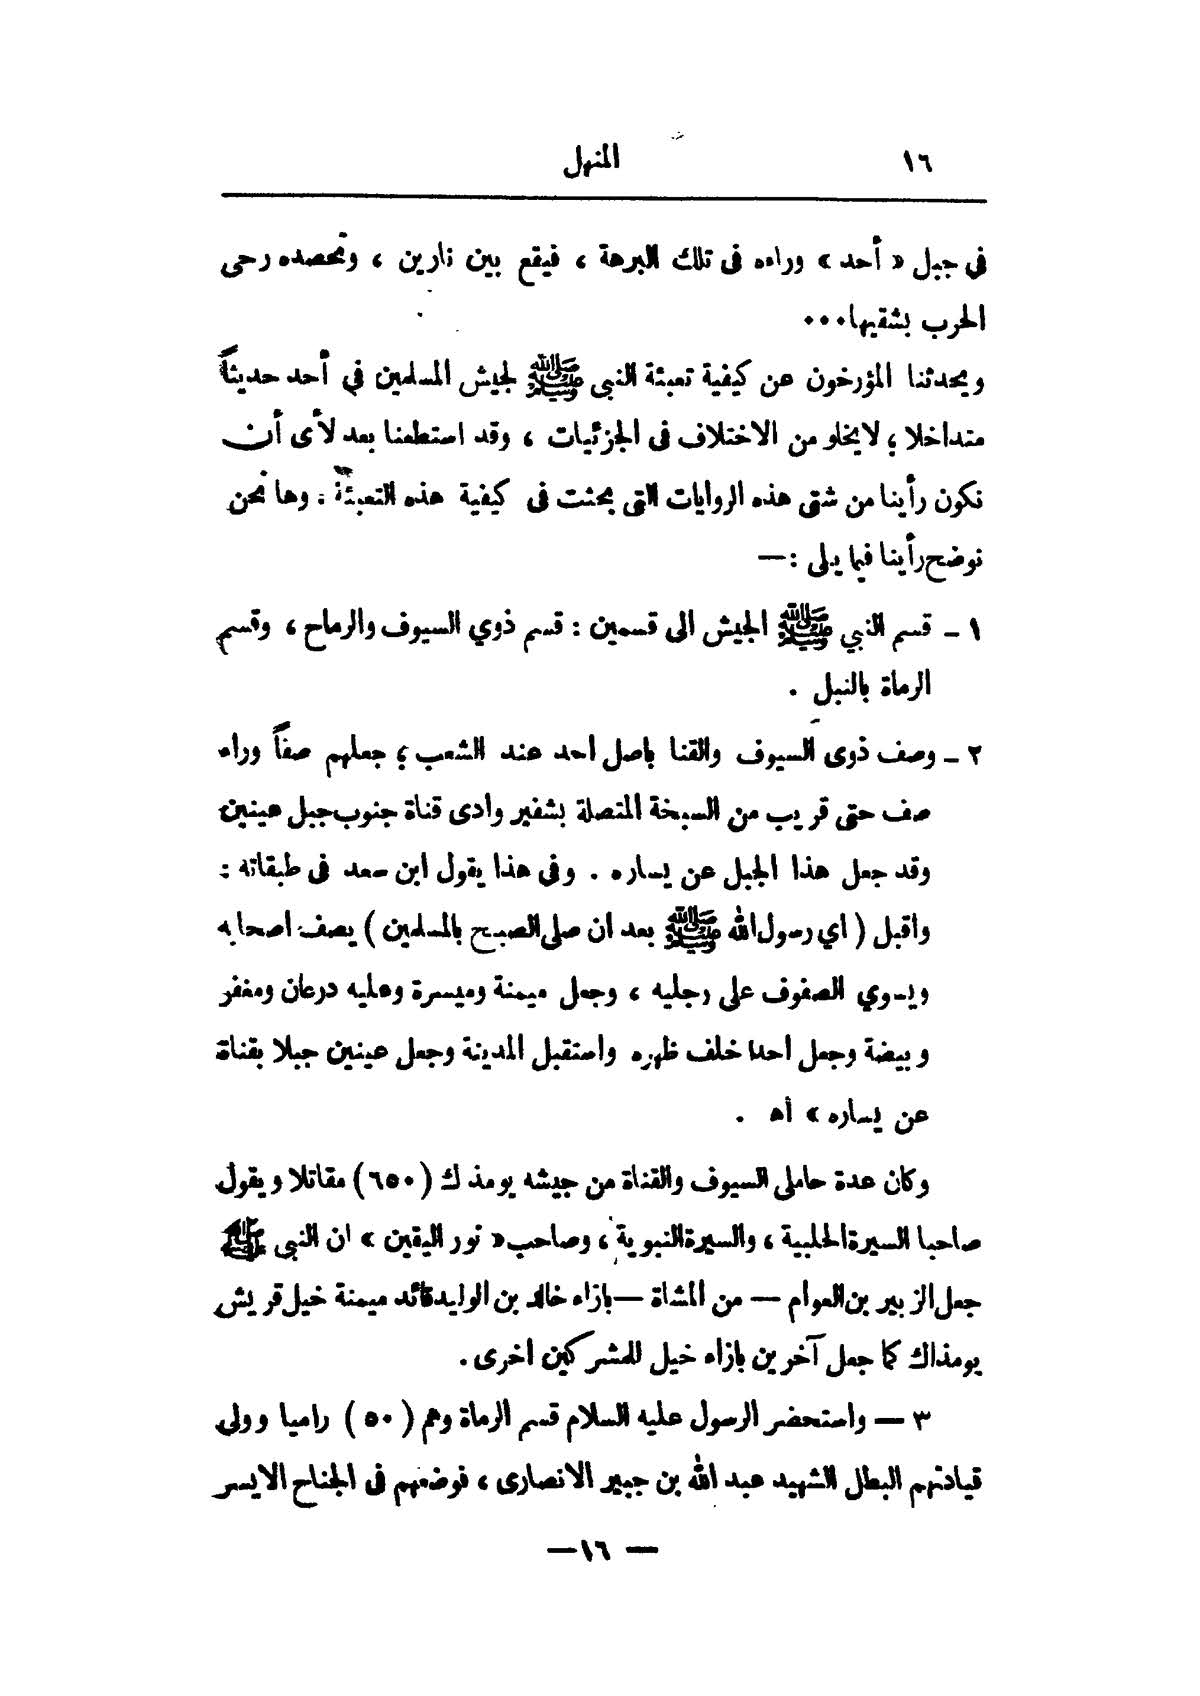 ١٦ المنهل
فى جبل « أحد » وراءه فى تلك البرهة ، فيقع بين نارين ، وتحصده رحى
الحرب بشقيها...
ويحدثنا المؤرخون عن كيفية تعبئة النبى ﷺ لجيش المسلمين في أحد حديثاً
متداخلا ؛ لا يخلو من الاختلاف فى الجزئيات ، وقد استطعنا بعد لأى أن
نكون رأينا من شتى هذه الروايات التى بحثت فى كيفية هذه التعبئة . وها نحن
نوضح رأينا فيما يلى :—
١ - قسم النبي ﷺ الجيش الى قسمين : قسم ذوي السيوف والرماح ، وقسم
الرماة بالنبل .
٢ - وصف ذوى السيوف والقنا باصل احد عند الشعب ؛ جعلهم صفاً وراء
صف حتى قريب من السبخة المتصلة بشفير وادى قناة جنوب جبل عينين
وقد جعل هذا الجبل عن يساره . وفى هذا يقول ابن سعد فى طبقاته :
واقبل ( اي رسول الله ﷺ بعد ان صلى الصبح بالمسلمين ) يصف اصحابه
ويسوي الصفوف على رجليه ، وجعل ميمنة وميسرة وعليه درعان ومغفر
وبيضة وجعل احدا خلف ظهره واستقبل المدينة وجعل عينين جبلا بقناة
عن يساره » أه .
وكان عدة حاملى السيوف والقناة من جيشه يومذ ك ( ٦٥٠ ) مقاتلا ويقول
صاحبا السيرة الحلبية ، والسيرة النبوية ، وصاحب « نور اليقين » ان النبى ﷺ
جعل الزبير بن العوام — من المشاة — بازاء خالد بن الوليد قائد ميمنة خيل قريش
يومذاك كما جعل آخرين بازاء خيل للمشركين اخرى .
٣ — واستحضر الرسول عليه السلام قسم الرماة وهم ( ٥٠ ) راميا وولى
قيادتهم البطل الشهيد عبد الله بن جبير الانصارى ، فوضعهم فى الجناح الايسر
— ١٦ —